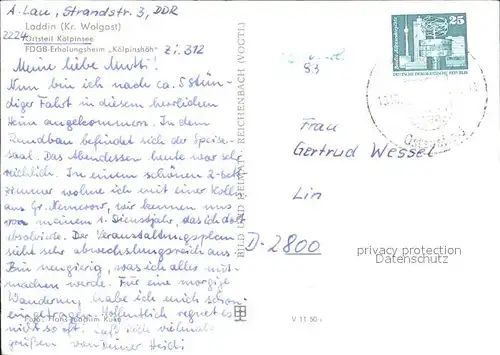 A. Lau, Strandstr. 3, DDR
2224
Loddin (Kr. Wolgast)
Ortsteil Kölpinsee
FDGB-Erholungsheim „Kölpinshöh" Zi. 312
Meine liebe Mutti!
Nun bin ich nach ca. 5 stün-
diger Fahrt in diesem herrlichen
Heim angekommen. In dem
Rundbau befindet sich der Speise-
saal. Das Abendessen heute war sehr
reichlich. In einem schönen 2-bett
zimmer wohne ich mit einer
aus Gr. Nemerow, wir kennen uns
von meinem 1. Dienstjahr, das ich dort
absolvierte. Der Veranstaltungsplan
sieht sehr abwechslungsreich aus.
Bin neugierig, was ich alles mit-
machen werde. Für eine morgige
Wanderung habe ich mich schon
eingetragen. Hoffentlich regnet es
Foto: Hans-Joachim
nicht so oft. Laß dich vielmals
grüßen von Deiner Heidi
BILD UND HEIMAT REICHENBACH (VOGTL)
83
25
DEUTSCHE DEMOKRATISCHE REPUBLIK
Frau
Gertrud Wessel
D-2800
privacy protection
Datenschutz
V 11 50